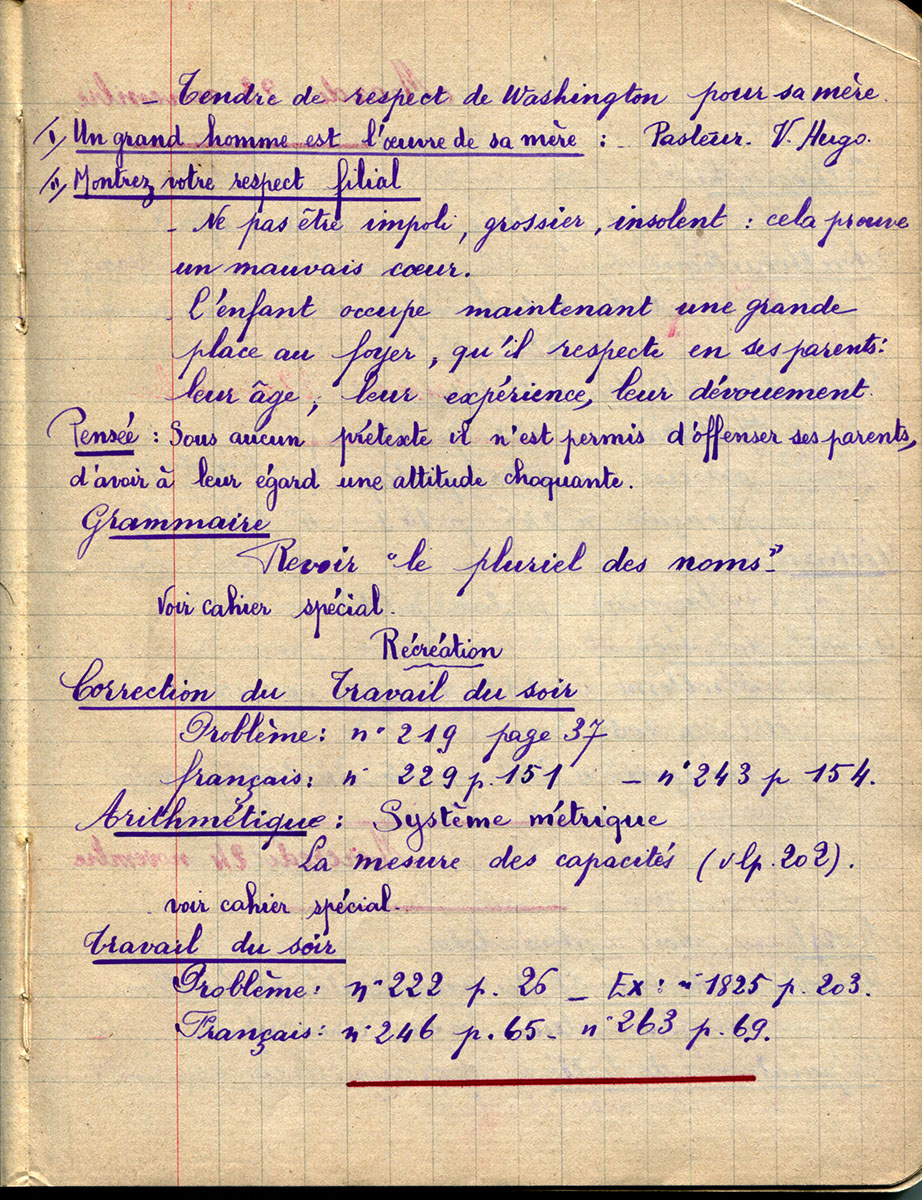 - Tendre de respect de Washington pour sa mère.
I, Un grand homme est l'œuvre de sa mère : - Pasteur. V. Hugo.
II, Montrez votre respect filial
- Ne pas être impoli, grossier, insolent : cela prouve
un mauvais cœur.
L'enfant occupe maintenant une grande
place au foyer, qu'il respecte en ses parents:
leur âge, leur expérience, leur dévouement.
Pensée : Sous aucun prétexte il n'est permis d'offenser ses parents,
d'avoir à leur égard une attitude choquante.
Grammaire
Revoir "le pluriel des noms"
Voir cahier spécial.
Récréation
Correction du Travail du soir
Problème: n° 219 page 37
français: n° 229 p. 151 - n° 243 p 154.
Arithmétique : Système métrique
La mesure des capacités (v l p. 202).
voir cahier spécial.
Travail du soir
Problème: n° 222 p. 26 - Ex: n° 1825 p. 203.
Français: n° 246 p. 65 - n° 263 p. 69.